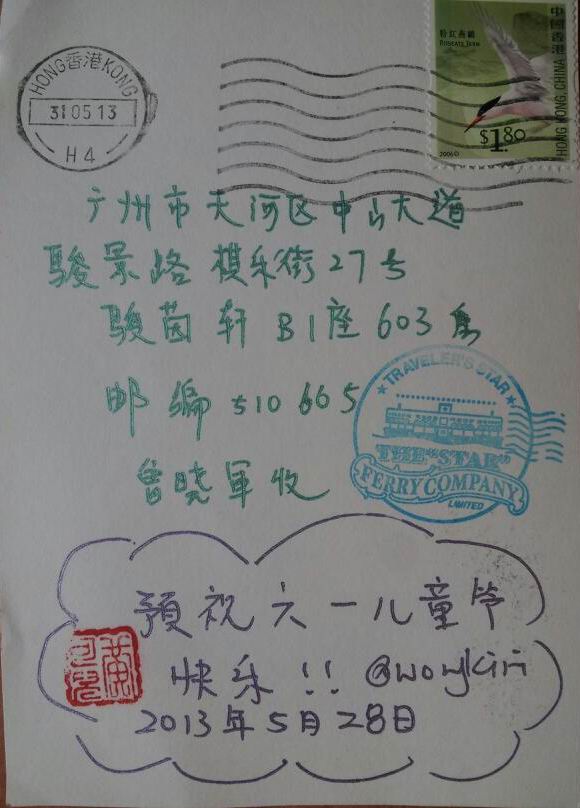 HONG 香港 KONG
31 05 13
H 4
粉紅燕鷗
ROSEATE TERN
中國香港
HONG KONG, CHINA
$1.80
2006
广州市天河区中山大道
骏景路棋乐街27号
骏茵轩B1座603房
邮编510665
曾晓军收
TRAVELER'S STAR
THE "STAR"
FERRY COMPANY
LIMITED
预祝六一儿童节
快乐!! @wongkiri
2013年5月28日